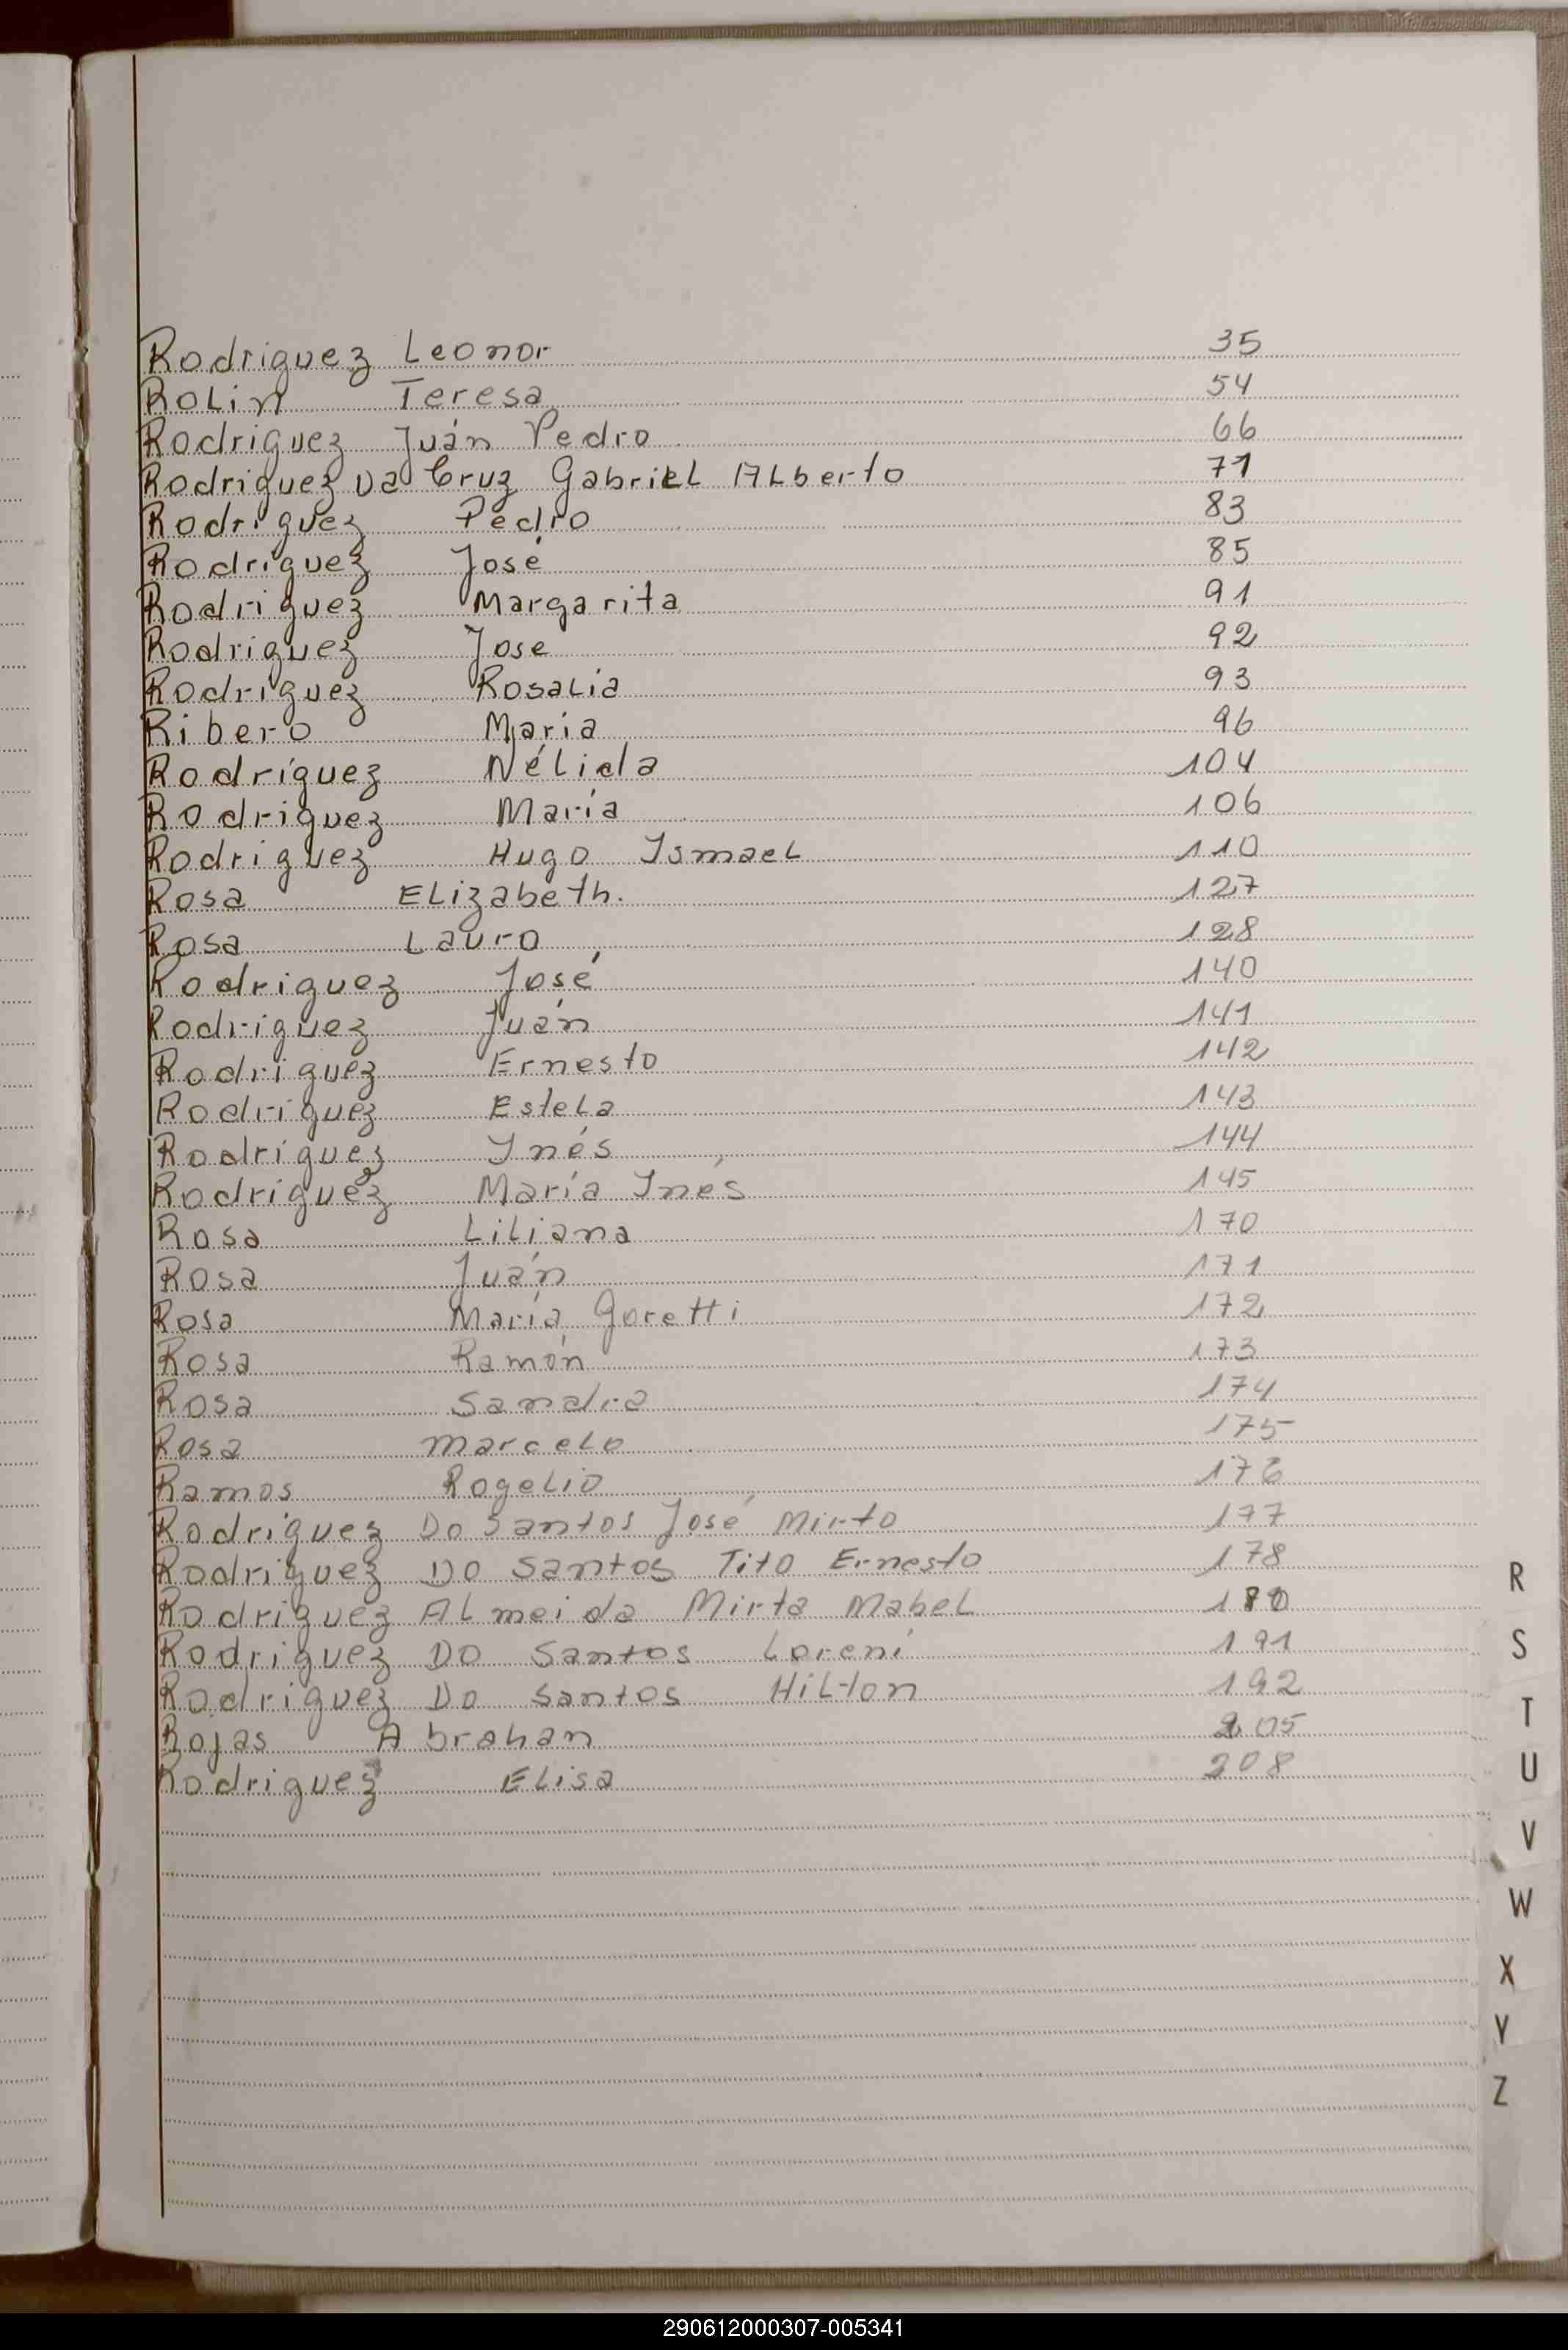 Rodriguez Leonor 35
Rolin Teresa 54
Rodriguez Juán Pedro 66
Rodriguez Da Cruz Gabriel Alberto 71
Rodriguez Pedro 83
Rodriguez José 85
Rodriguez Margarita 91
Rodriguez Jose 92
Rodriguez Rosalia 93
Ribero María 96
Rodríguez Nélida 104
Rodriguez María 106
Rodriguez Hugo Ismael 110
Rosa Elizabeth. 127
Rosa Lauro 128
Rodriguez José 140
Rodriguez Juán 141
Rodriguez Ernesto 142
Rodriguez Estela 143
Rodríguez Inés 144
Rodriguez María Inés 145
Rosa Liliana 170
Rosa Juán 171
Rosa María Goretti 172
Rosa Ramón 173
Rosa Sandra 174
Rosa Marcelo 175
Ramos Rogelio 176
Rodriguez Do Santos José Mirto 177
Rodriguez Do Santos Tito Ernesto 178
Rodriguez Almeida Mirta Mabel
Rodriguez Do Santos Loreni 191
Rodriguez Do Santos Hilton 192
Rojas Abrahan 205
Rodriguez Elisa 208
R
S
T
U
V
W
X
Y
Z
290612000307-005341